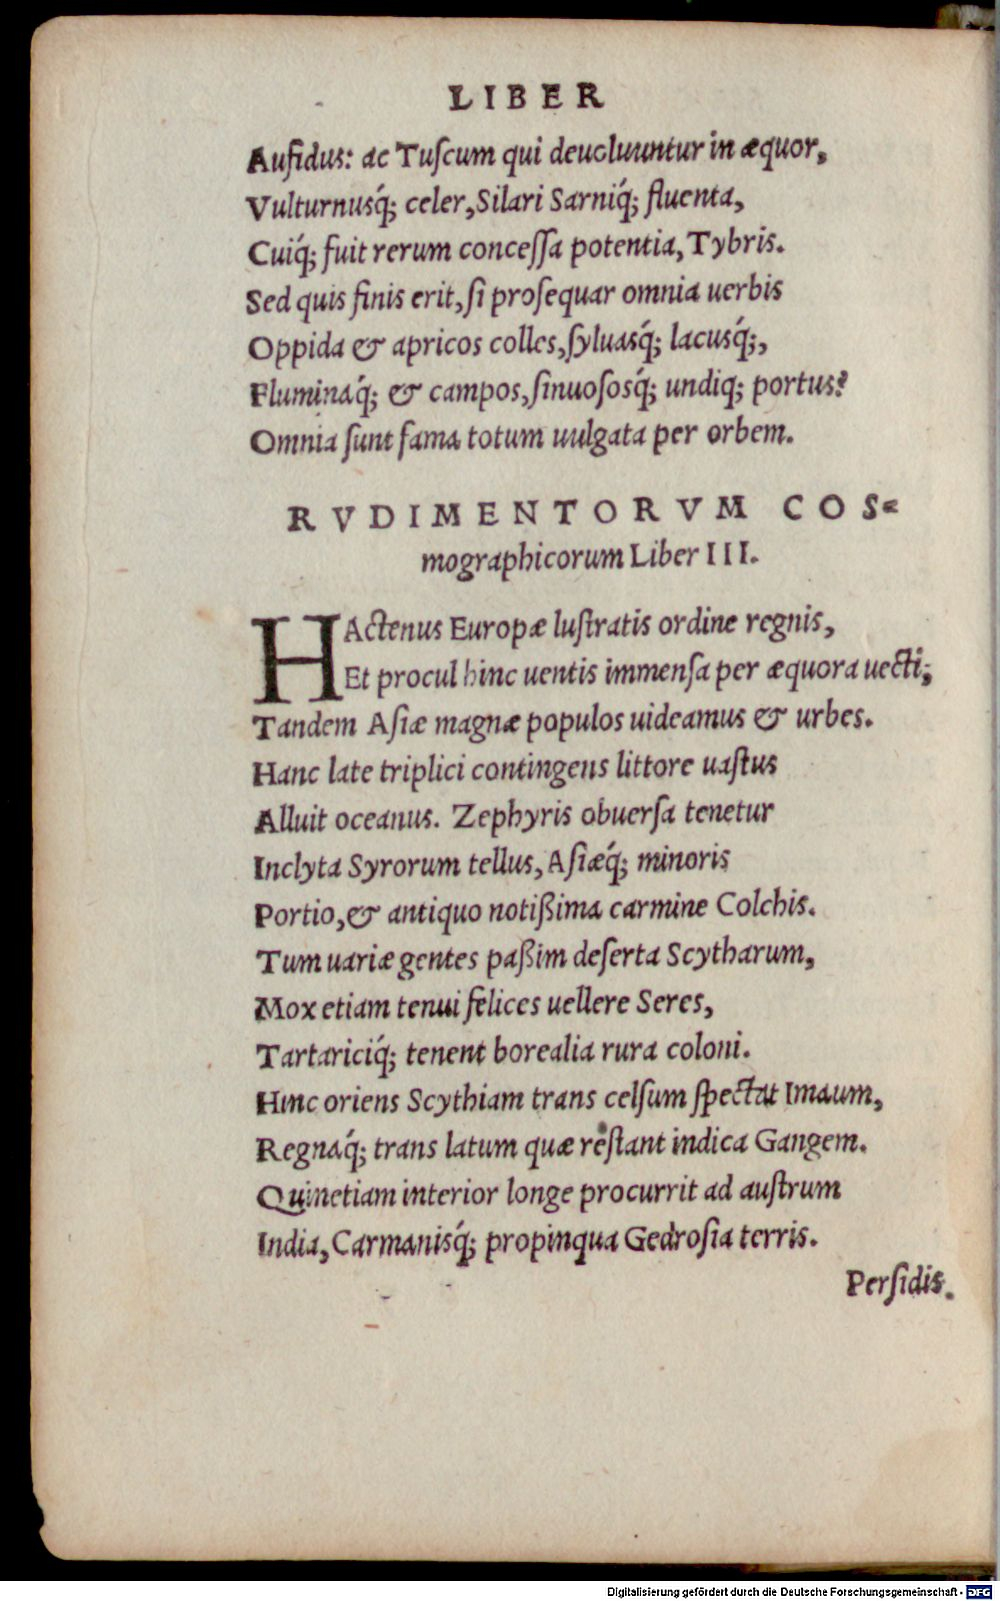 LIBER
Aufidus: ac Tuſcum qui deuoluuntur in æquor,
Vulturnusq́; celer, Silari Sarniq́; fluenta,
Cuiq́; fuit rerum conceſſa potentia, Tybris.
Sed quis finis erit, ſi proſequar omnia uerbis
Oppida & apricos colles, ſyluasq́; lacusq́;,
Fluminaq́; & campos, ſinuoſosq́; undiq; portus?
Omnia ſunt fama totum uulgata per orbem.
RVDIMENTORVM COS=
mographicorum Liber III.
HActenus Europæ luſtratis ordine regnis,
Et procul hinc uentis immenſa per æquora uecti;
Tandem Aſiæ magnæ populos uideamus & urbes.
Hanc late triplici contingens littore uaſtus
Alluit oceanus. Zephyris obuerſa tenetur
Inclyta Syrorum tellus, Aſiæq́; minoris
Portio, & antiquo notißima carmine Colchis.
Tum uariæ gentes paßim deſerta Scytharum,
Mox etiam tenui felices uellere Seres,
Tartariciq́; tenent borealia rura coloni.
Hinc oriens Scythiam trans celſum ſpectat Imaum,
Regnaq́; trans latum quæ reſtant indica Gangem.
Quinetiam interior longe procurrit ad auſtrum
India, Carmanisq́; propinqua Gedroſia terris.
Perſidis.
Digitalisierung gefördert durch die Deutsche Forschungsgemeinschaft - DFG